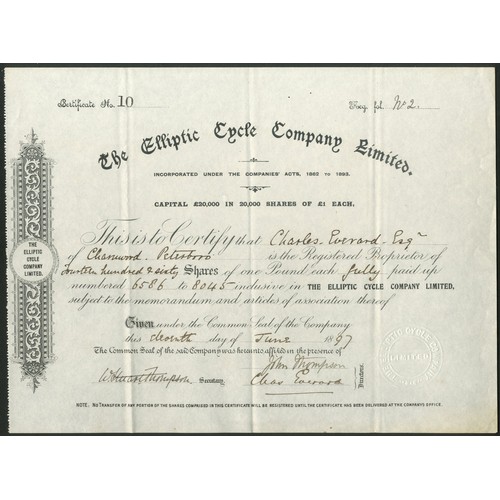 Certificate No. 10
Reg. fol. No 2.
The Elliptic Cycle Company Limited.
INCORPORATED UNDER THE COMPANIES' ACTS, 1862 TO 1893.
CAPITAL £20,000 IN 20,000 SHARES OF £1 EACH.
This is to Certify that Charles Everard Esqr
of Charnwood Peterboro is the Registered Proprietor of
fourteen hundred & sixty Shares of one Pound each fully paid up
numbered 6586 to 8045 inclusive in THE ELLIPTIC CYCLE COMPANY LIMITED,
subject to the memorandum and articles of association thereof
THE
ELLIPTIC CYCLE
COMPANY
LIMITED.
Given under the Common Seal of the Company
this eleventh day of June 1897
The Common Seal of the said Company was hereunto affixed in the presence of
John Thompson
W Stuart Thompson Secretary. Chas Everard
Directors.
ELLIPTIC CYCLE COMPANY
LIMITED
NOTE. NO TRANSFER OF ANY PORTION OF THE SHARES COMPRISED IN THIS CERTIFICATE WILL BE REGISTERED UNTIL THE CERTIFICATE HAS BEEN DELIVERED AT THE COMPANYS OFFICE.